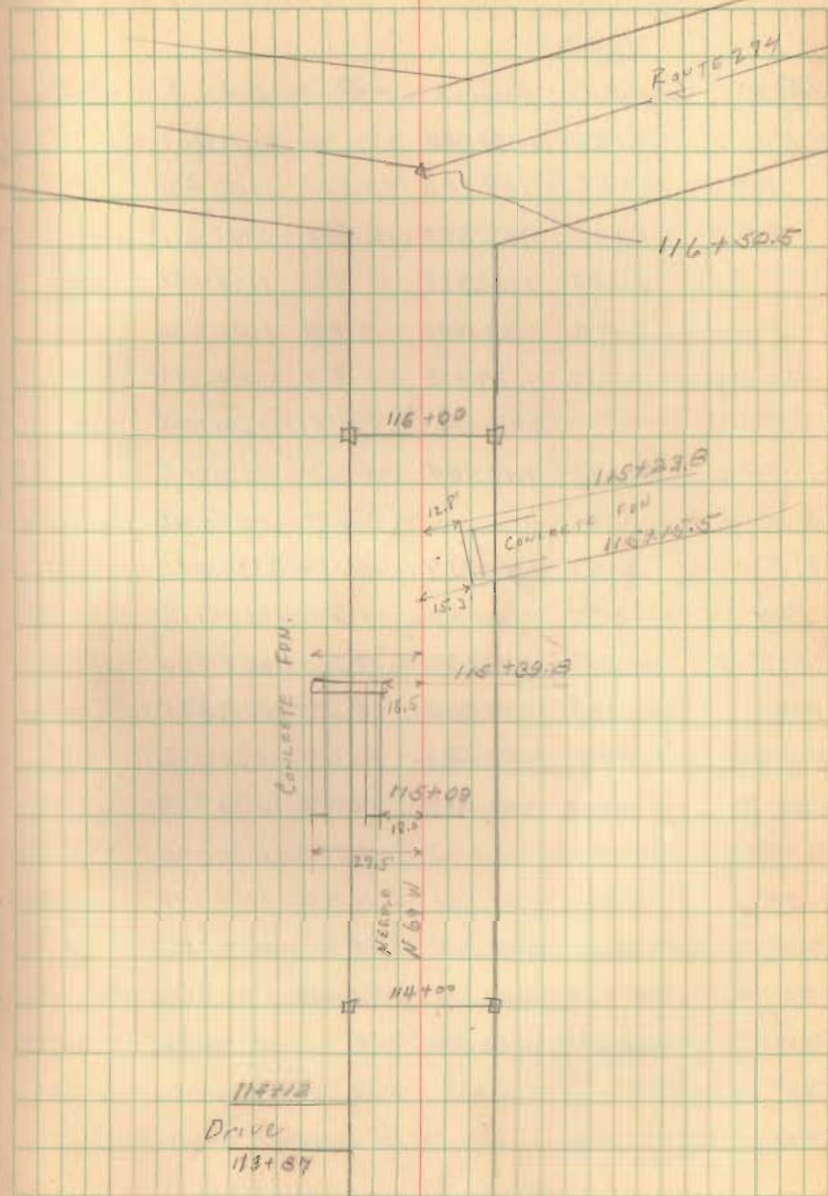 ROUTE 274
116 + 50.5
116 +00
115+23.8
12.8'
CONCRETE FDN
115+15.5
15.2
CONCRETE FDN.
115 +39.8
18.0
115+09
18.0
29.5
N 69 W
114+00
114+12
Drive
113+87